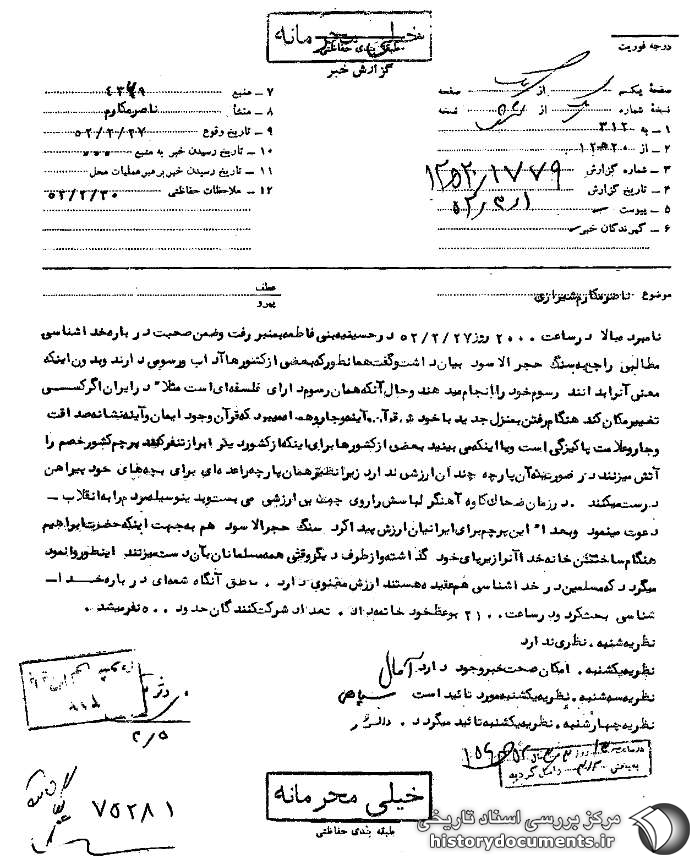 خیلی محرمانه
طبقه بندی حفاظتی
گزارش خبر
درجه فوریت
صفحه یکم از یک صفحه
نسخه شماره از نسخه
۱ ــ به ۳۱۲
۲ ــ از
۳ ــ شماره گزارش
۴ ــ تاریخ گزارش
۵ ــ پیوست
۶ ــ گیرندگان خبر
۷ ــ منبع
۸ ــ منشأ ناصر مکارم
۹ ــ تاریخ وقوع ۵۲/۲/۲۷
۱۰ ــ تاریخ رسیدن خبر به منبع
۱۱ ــ تاریخ رسیدن خبر بر هبر عملیات محل
۱۲ ــ ملاحظات حفاظتی ۵۲/۲/۳۰
موضوع ناصر مکارم شیرازی
عطف
پیرو
نامبرده بالا در ساعت ۲۰۰۰ روز ۵۲/۲/۲۷ در حسینیه بنی فاطمه بمنبر رفت و ضمن صحبت در باره خدا شناسی
مطالبی راجع به سنگ حجر الا سود بیان داشت و گفت همانطور که بعضی از کشورها آداب و رسومی دارند و بدون اینکه
معنی آنرا بدانند رسوم خود را انجام میدهند و حال آنکه همان رسوم دارای فلسفه ای است مثلا" در ایران اگر کسی
تغییر مکان کند هنگام رفتن بمنزل جدید با خودش قرآن آینه و جارو همراه میبرد که قرآن وجود ایمان و آینه نشانه صداقت
و جارو علامت پاکیزگی است و یا اینکه می بینید بعضی از کشورها برای اینکه از کشور دیگر ابراز تنفر کنند پرچم کشور خصم را
آتش میزنند در صورتیکه آن پارچه چندان ارزشی ندارد زیرا نظیر همان پارچه را عده ای برای بچه های خود پیراهن
درست میکنند . در زمان ضحاک کاوه آهنگر لباسش را روی چوب بی ارزشی می بست و بدینوسیله مردم را به انقلاب ــ
دعوت مینمود و بعدا" این پرچم برای ایرانیان ارزش پیدا کرد . سنگ حجر الا سود هم به جهت اینکه حضرت ابراهیم
هنگام ساختن خانه خدا آنرا زیر پای خود گذاشته و از طرف دیگر وقتی همه مسلمانان بآن دست میزنند اینطور وانمود
میگردد که مسلمین در خدا شناسی هم عقیده هستند ارزش معنوی دارد . ناطق آنگاه شمه ای در باره خدا ــ
شناسی بحث کرد و در ساعت ۲۱۰۰ بوعظ خود خاتمه داد . تعداد شرکت کنندگان حدود ۵۰۰ نفر میشد .
نظریه شنبه . نظری ندارد
نظریه یکشنبه . امکان صحت خبر وجود دارد آمال
نظریه سه شنبه . نظریه یکشنبه مورد تائید است سپاهی
نظریه چهارشنبه . نظریه یکشنبه تائید میگردد .
۷۵۲۸۱
خیلی محرمانه
طبقه بندی حفاظتی
مرکز بررسی اسناد تاریخی
historydocuments.ir